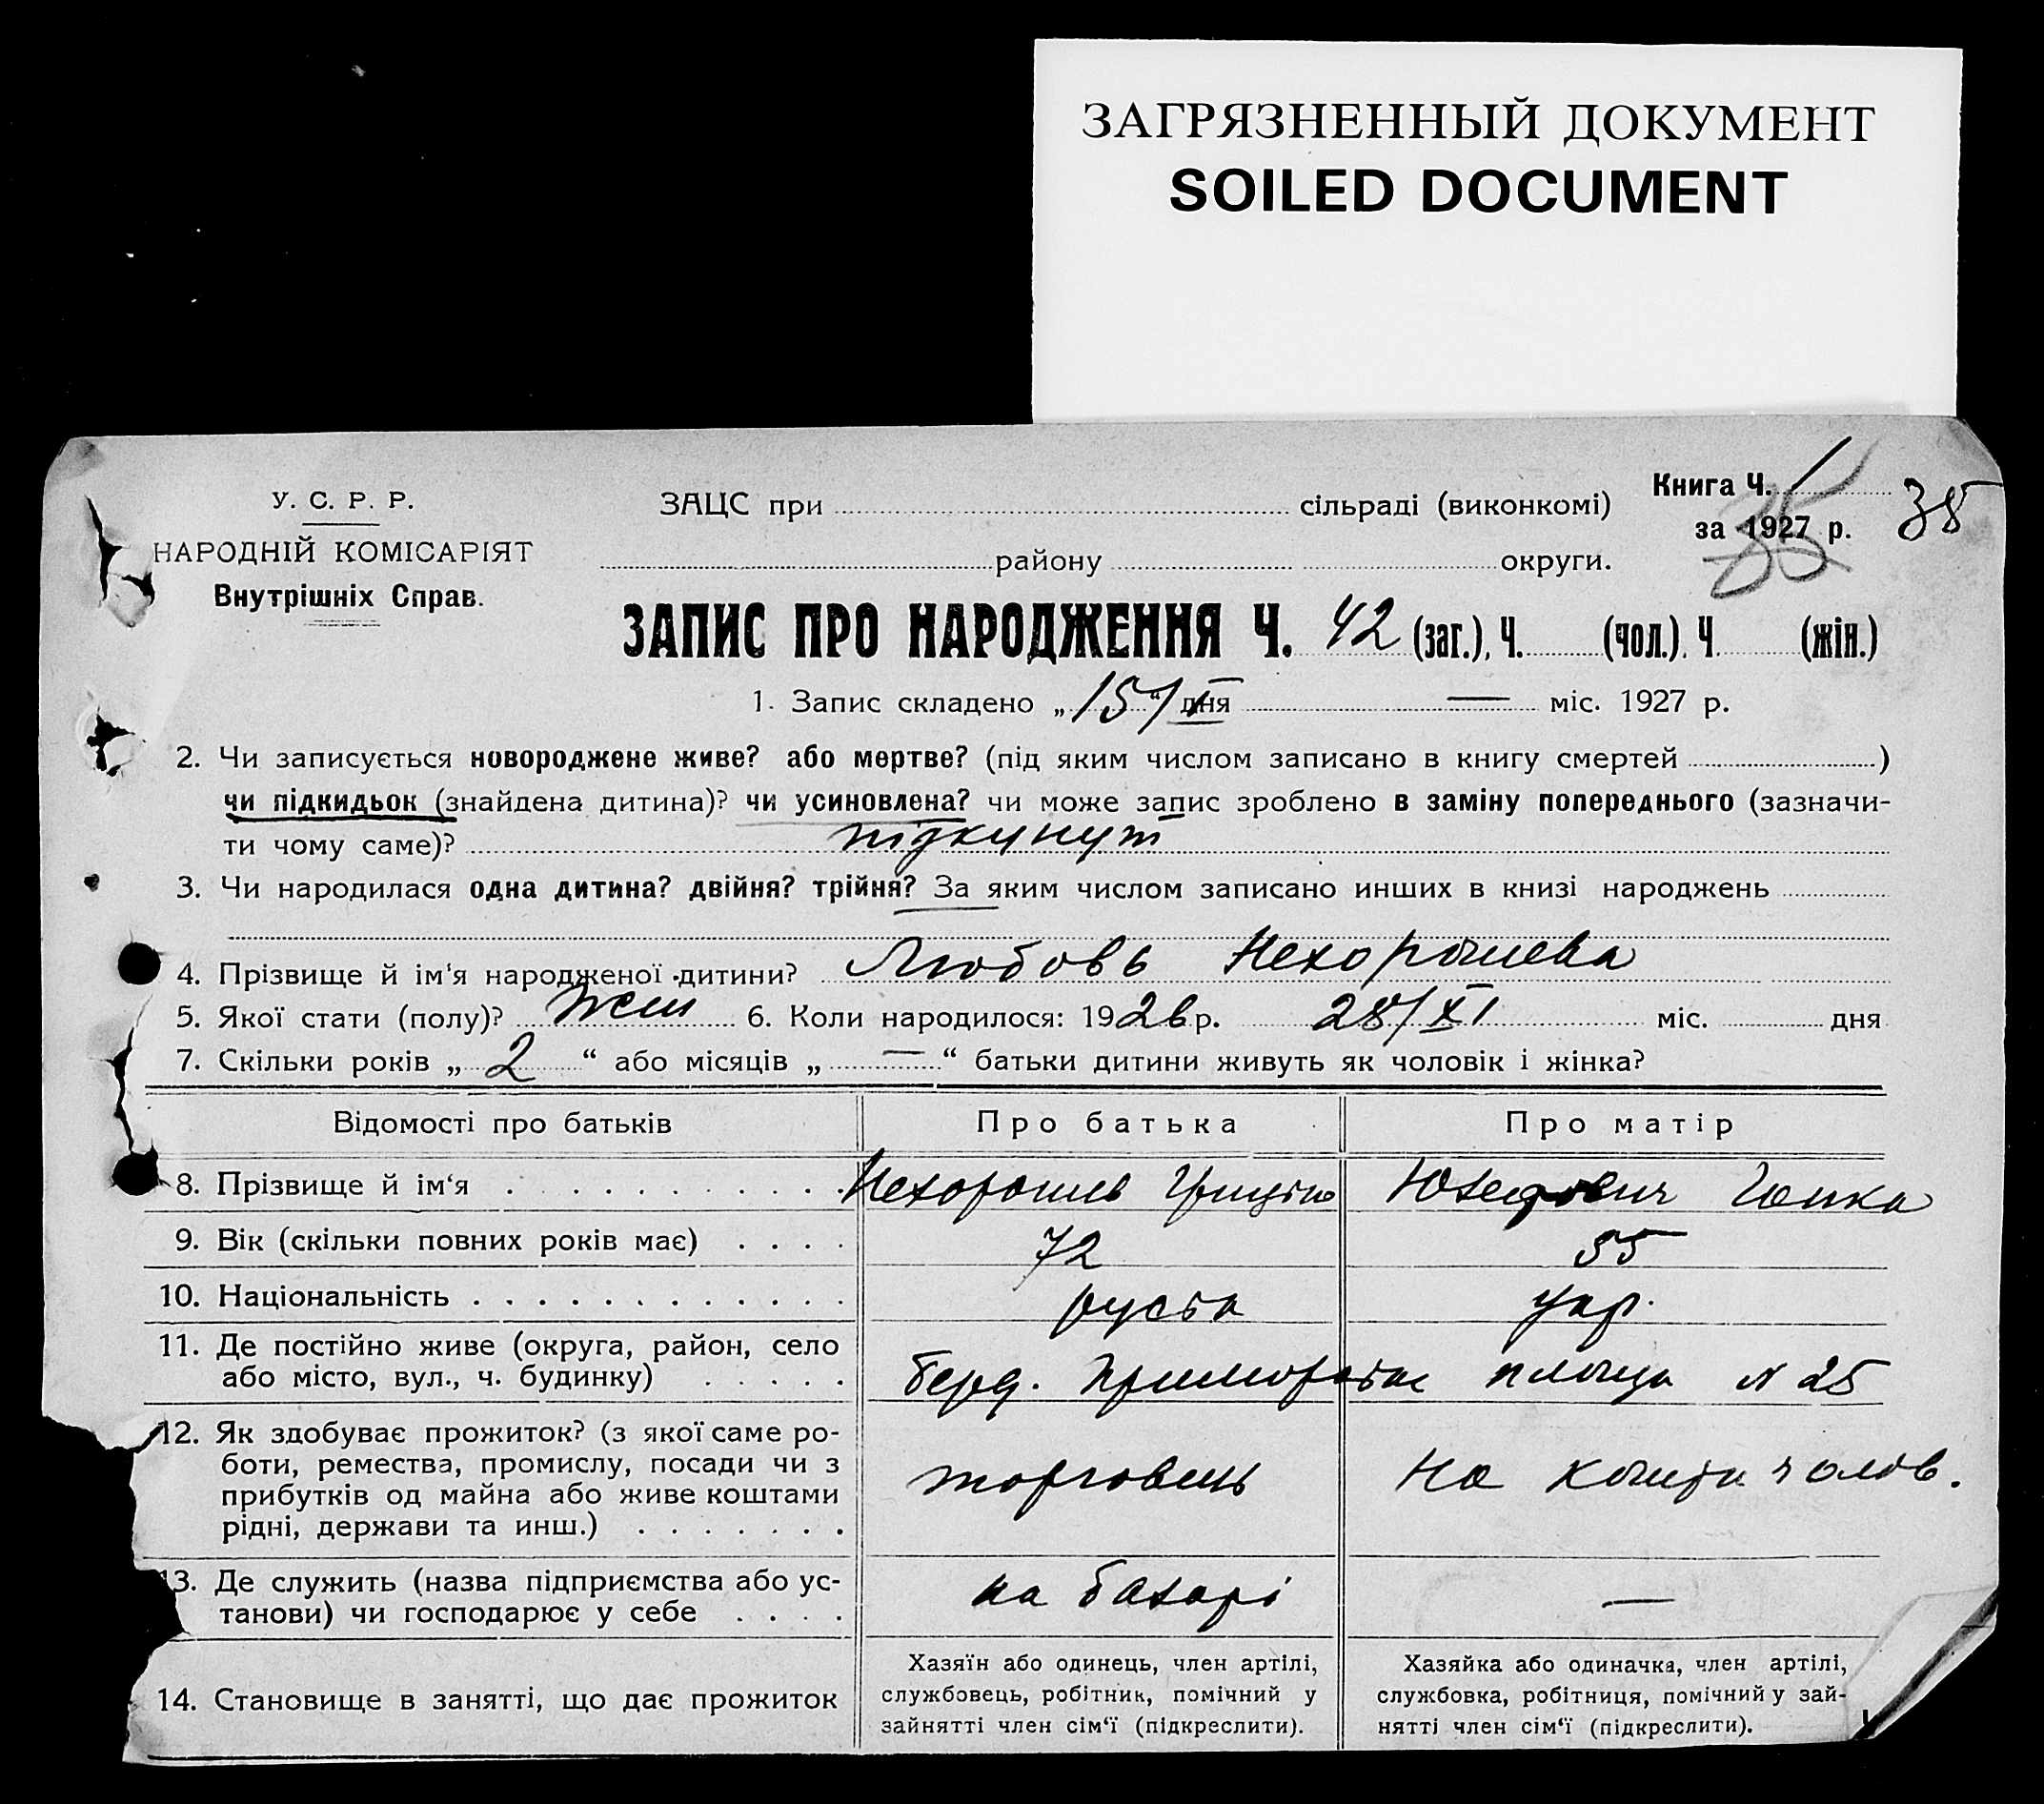 ЗАГРЯЗНЕННЫЙ ДОКУМЕНТ
SOILED DOCUMENT
У. С. Р. Р.
НАРОДНІЙ КОМІСАРІЯТ
Внутрішніх Справ.
ЗАЦС при сільраді (виконкомі)
району округи.
Книга Ч. 1
за 1927 р.
35
35
ЗАПИС ПРО НАРОДЖЕННЯ Ч. 42 (заг.), Ч. (чол.). Ч. (жін.)
1. Запис складено „15/I“ дня — міс. 1927 р.
2. Чи записується новороджене живе? або мертве? (під яким числом записано в книгу смертей )
чи підкидьок (знайдена дитина)? чи усиновлена? чи може запис зроблено в заміну попереднього (зазначи-
ти чому саме)? підкинут
3. Чи народилася одна дитина? двійня? трійня? За яким числом записано инших в книзі народжень
4. Прізвище й ім‘я народженої дитини? Любовь Нехорошева
5. Якої стати (полу)? жін 6. Коли народилося: 1926 р. 28/XI міс. дня
7. Скільки років „ 2 “ або місяців „ — “ батьки дитини живуть як чоловік і жінка?
Відомості про батьків Про батька Про матір
8. Прізвище й ім‘я Нехорошев
9. Вік (скільки повних років має) 72 55
10. Національність руська укр.
11. Де постійно живе (округа, район, село
або місто, вул., ч. будинку) Берд. Приморська площа № 25
12. Як здобуває прожиток? (з якої саме ро-
боти, ремества, промислу, посади чи з
прибутків од майна або живе коштами
рідні, держави та инш.)
торговець На кошти чолов.
13. Де служить (назва підприємства або ус-
танови) чи господарює у себе
на базарі —
14. Становище в занятті, що дає прожиток
Хазяїн або одинець, член артілі,
службовець, робітник, помічний у
зайнятті член сім‘ї (підкреслити).
Хазяйка або одиначка, член артілі,
службовка, робітниця, помічний у зай-
нятті член сім‘ї (підкреслити).